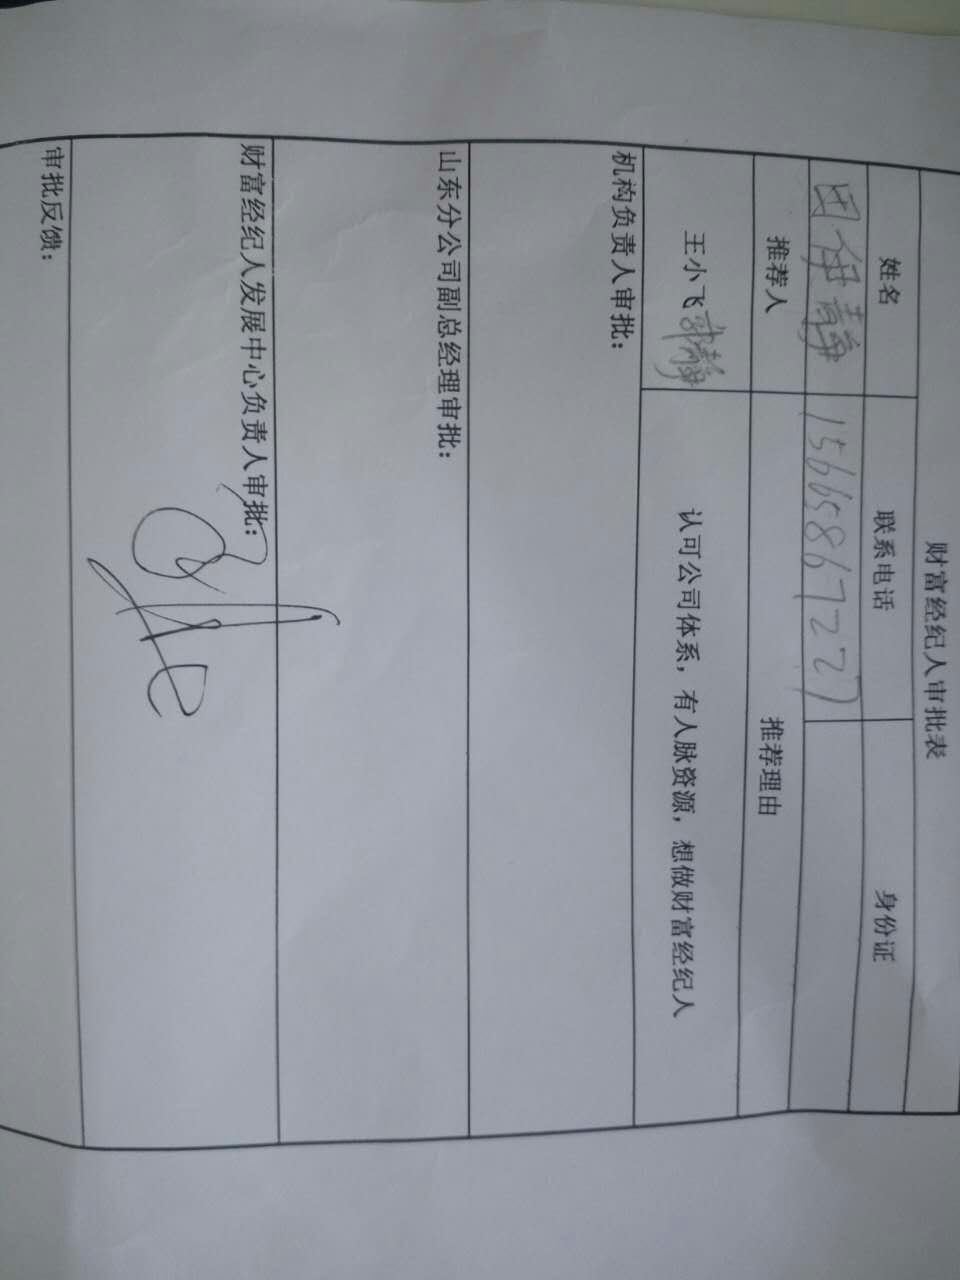 财富经纪人审批表
姓名 联系电话 身份证
田伊静 15665867227
推荐人 推荐理由
王小飞 认可公司体系，有人脉资源，想做财富经纪人
机构负责人审批：
山东分公司副总经理审批：
财富经纪人发展中心负责人审批：
审批反馈：